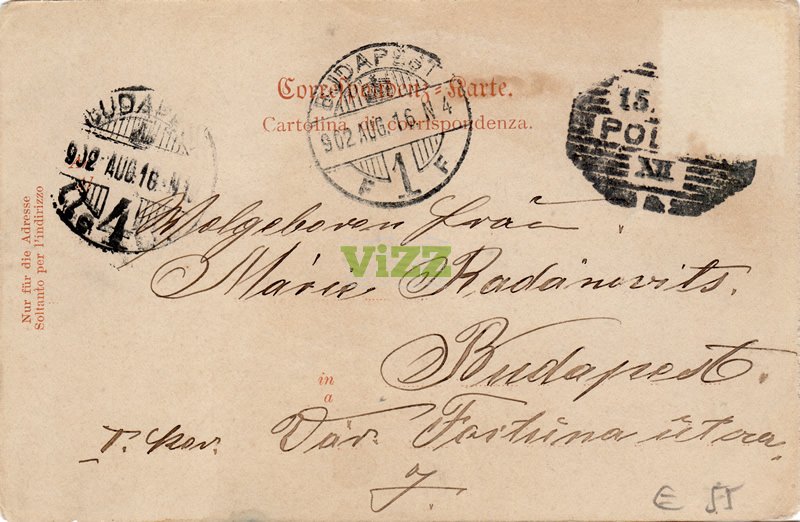 BUDAPEST
902 AUG. 16. N 4
F 1 F
BUDAPE
902 AUG. 16. N
15.
POL
XII
Correspondenz-Karte.
Cartolina di corrispondenza.
Nur für die Adresse
Soltanto per l'indirizzo
Wolgeboren frau
ViZZ
Marie Radánovits.
in
a
Budapest.
I. ker. Vár. Fortuna útcza
7.
E 55